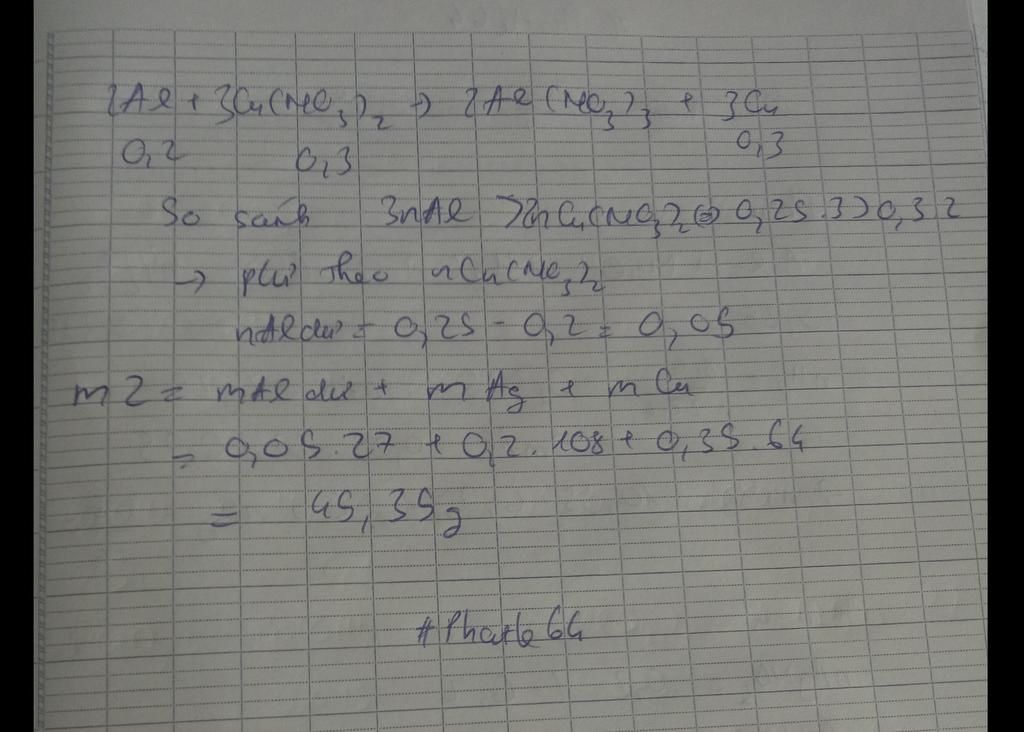 2Al + 3Cu(NO3)2 → 2Al(NO3)3 + 3Cu
0,2 0,3 0,3
So sánh 3nAl > 2nCu(NO3)2 ⇔ 0,25.3 > 0,3.2
→ pứ theo nCu(NO3)2
nAl dư = 0,25 - 0,2 = 0,05
m Z = mAl dư + m Ag + m Cu
= 0,05.27 + 0,2.108 + 0,35.64
= 45,35g